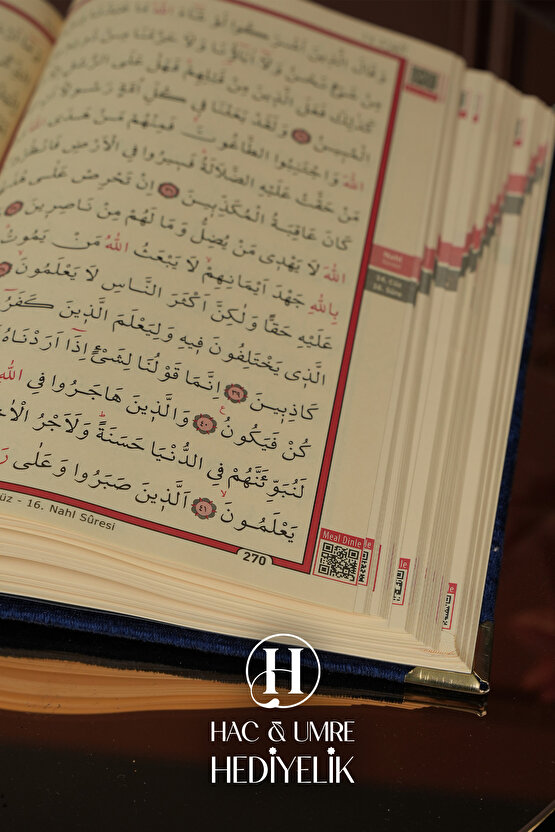 وَقَالَ الَّذ۪ينَ اَشْرَكُوا لَوْ شَٓاءَ اللّٰهُ مَا عَبَدْنَا
مِنْ شَيْءٍ نَحْنُ وَلَٓا اٰبَٓاؤُ۬نَا وَلَا حَرَّمْنَا مِنْ دُونِه۪
كَذٰلِكَ فَعَلَ الَّذ۪ينَ مِنْ قَبْلِهِمْ فَهَلْ عَلَى الرُّسُلِ
الْمُب۪ينُ ﴿٣٥﴾ وَلَقَدْ بَعَثْنَا ف۪ي كُلِّ اُمَّةٍ رَسُولًا
اللّٰهَ وَاجْتَنِبُوا الطَّاغُوتَۚ فَمِنْهُمْ مَنْ هَدَى اللّٰهُ
مَنْ حَقَّتْ عَلَيْهِ الضَّلَالَةُۜ فَس۪يرُوا فِي الْاَرْضِ فَانْظُرُوا
كَانَ عَاقِبَةُ الْمُكَذِّب۪ينَ ﴿٣٦﴾ اِنْ تَحْرِصْ عَلٰى هُدٰيهُمْ
اللّٰهَ لَا يَهْد۪ي مَنْ يُضِلُّ وَمَا لَهُمْ مِنْ نَاصِر۪ينَ ﴿٣٧﴾
بِاللّٰهِ جَهْدَ اَيْمَانِهِمْۙ لَا يَبْعَثُ اللّٰهُ مَنْ يَمُوتُۜ
عَلَيْهِ حَقًّا وَلٰكِنَّ اَكْثَرَ النَّاسِ لَا يَعْلَمُونَۙ ﴿٣٨﴾
الَّذ۪ي يَخْتَلِفُونَ ف۪يهِ وَلِيَعْلَمَ الَّذ۪ينَ كَفَرُٓوا
كَاذِب۪ينَ ﴿٣٩﴾ اِنَّمَا قَوْلُنَا لِشَيْءٍ اِذَٓا اَرَدْنَاهُ
كُنْ فَيَكُونُ۟ ﴿٤٠﴾ وَالَّذ۪ينَ هَاجَرُوا فِي اللّٰهِ
لَنُبَوِّئَنَّهُمْ فِي الدُّنْيَا حَسَنَةًۜ وَلَاَجْرُ الْاٰخِرَةِ
يَعْلَمُونَۙ ﴿٤١﴾ اَلَّذ۪ينَ صَبَرُوا وَعَلٰى
Nahl
14. Cüz
16. Sûre
üz - 16. Nahl Sûresi
270
Meal Dinle
H
HAC & UMRE
HEDİYELİK